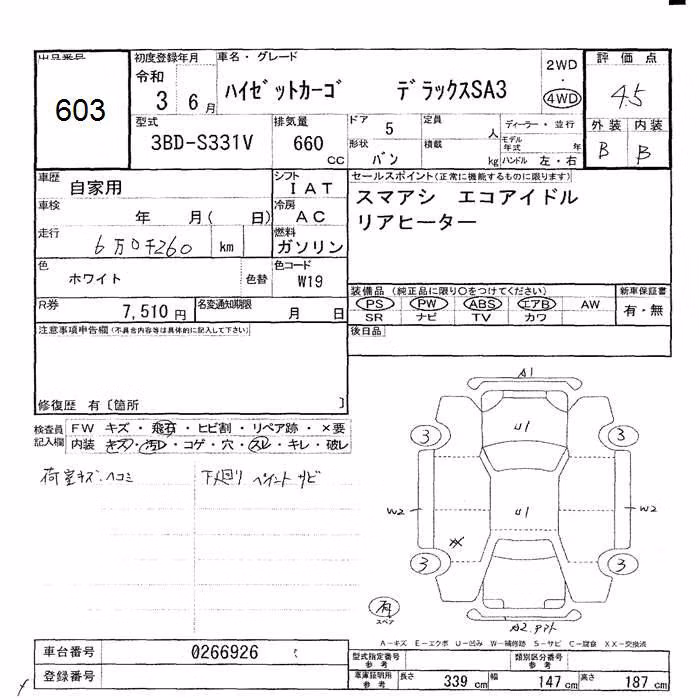 出品番号
603
初度登録年月
令和
3 6月
車名・グレード
ハイゼットカーゴ デラックスSA3
2WD
・
4WD
評価点
4.5
外装 内装
B B
型式
3BD-S331V
排気量
660 cc
ドア
5
形状
バン
定員
人
積載
kg
ディーラー・並行
モデル年式 年
ハンドル 左・右
車歴
自家用
シフト
IAT
車検
年 月( 日)
冷房
AC
走行
6万0千260 km
燃料
ガソリン
色
ホワイト
色替
色コード
W19
R券
7,510円
名変通知期限
月 日
セールスポイント(正常に機能するものに限ります)
スマアシ エコアイドル
リアヒーター
装備品(純正品に限り○をつけてください)
PS PW ABS エアB AW
SR ナビ TV カワ
新車保証書
有・無
後日品
注意事項申告欄(不具合内容等は具体的に記入して下さい)
修復歴 有〔箇所 〕
検査員記入欄
FW キズ・飛石・ヒビ割・リペア跡・×要
内装 キズ・汚レ・コゲ・穴・スレ・キレ・破レ
荷室キズ、ヘコミ
下廻り ペイント サビ
A1
U1
3 3
W2 U1 W2
3 3
スペア
A-キズ E-エクボ U-凹み W-補修跡 S-サビ C-腐食 XX-交換済
車台番号
0266926
登録番号
型式指定番号
参考
類別区分番号
参考
車庫証明用
参考
長さ 339 cm 幅 147 cm 高さ 187 cm